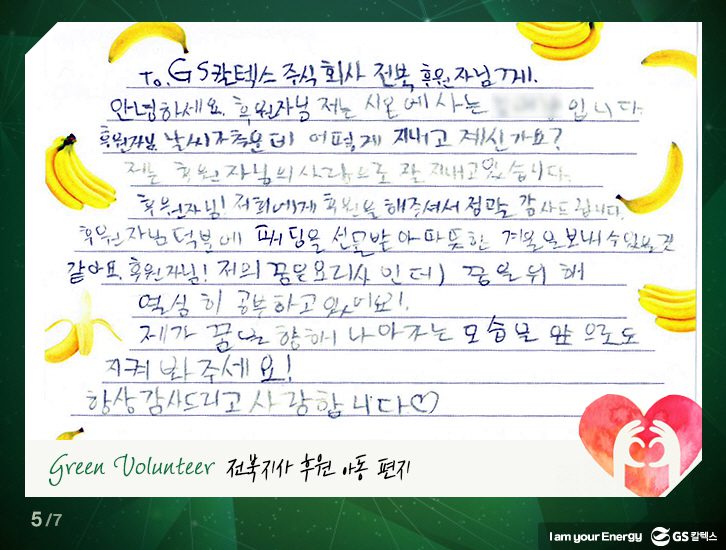 To. GS칼텍스 주식회사 전북 후원자님께.
안녕하세요. 후원자님 저는 시온에 사는 입니다.
후원자님 날씨가 추운데 어떻게 지내고 계신가요?
저는 후원자님의 사랑으로 잘 지내고♡있습니다.
후원자님! 저희에게 후원을 해주셔서 정말 감사드립니다.
후원자님 덕분에 패딩을 선물받아 따뜻한 겨울을 보내수있을것
같아요. 후원자님! 저의 꿈은 요리사 인데, 꿈을 위해
열심히 공부하고 있어요!
제가 꿈을 향해 나아가는 모습을 앞으로도
지켜 봐 주세요!
항상 감사드리고 사랑합니다♡
Green Volunteer 전북지사 후원 아동 편지
5/7
I am your Energy GS칼텍스